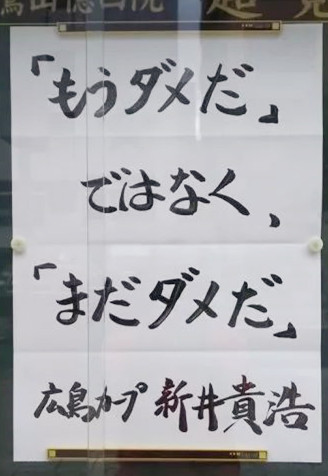 「もうダメだ」
ではなく、
「まだダメだ」
広島カープ 新井貴浩